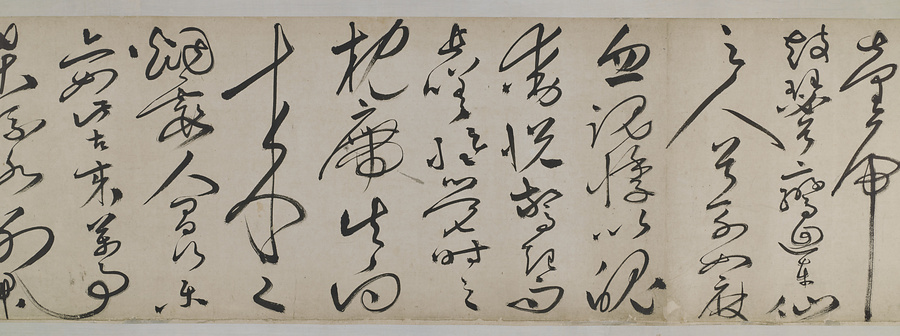 虎
鼓瑟兮鸞迴車仙
之人兮列如麻
忽魂悸以魄
動怳驚起而
長嗟惟覺時之
枕席失向
來之
煙霞人間行樂
亦如此古來萬事
東流水別君